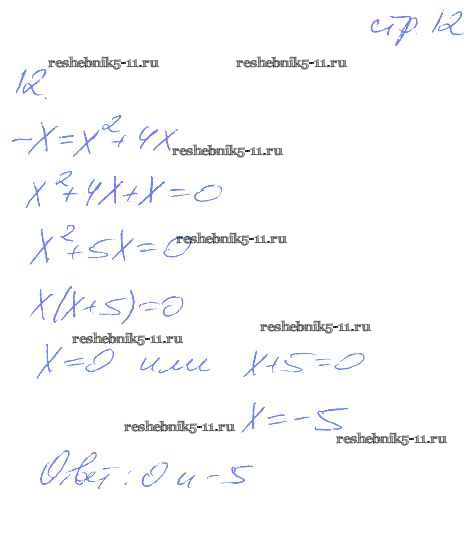 стр 12
reshebnik5-11.ru reshebnik5-11.ru
12.
-x=x²+4x
reshebnik5-11.ru
x²+4x+x=0
x²+5x=0
reshebnik5-11.ru
x(x+5)=0
reshebnik5-11.ru
reshebnik5-11.ru
x=0 или x+5=0
x=-5
reshebnik5-11.ru
reshebnik5-11.ru
Ответ: 0 и -5